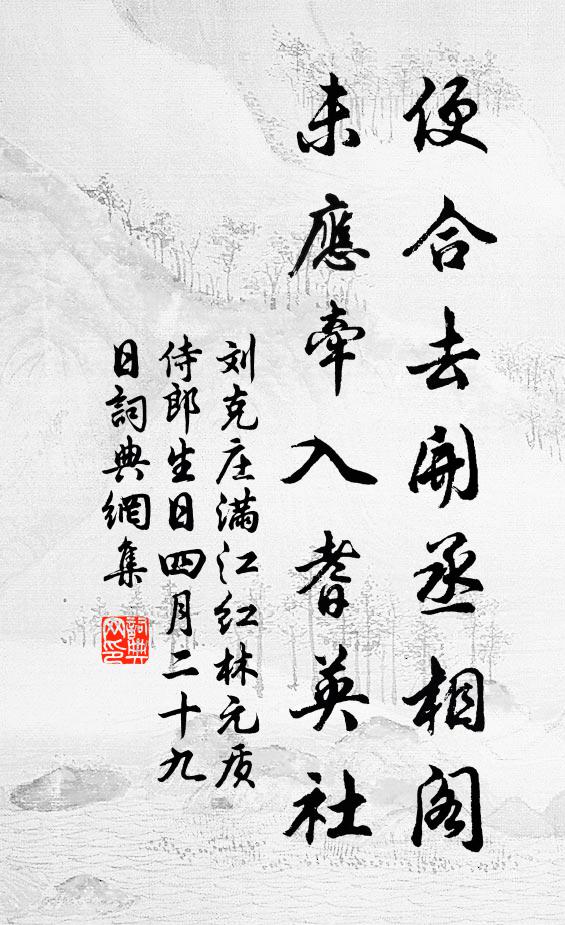 便合去開丞相阁
未應牽入耆英社
刘克庄满江红林元质
侍郎生日四月二十九
日詞典網集
詞典
网印